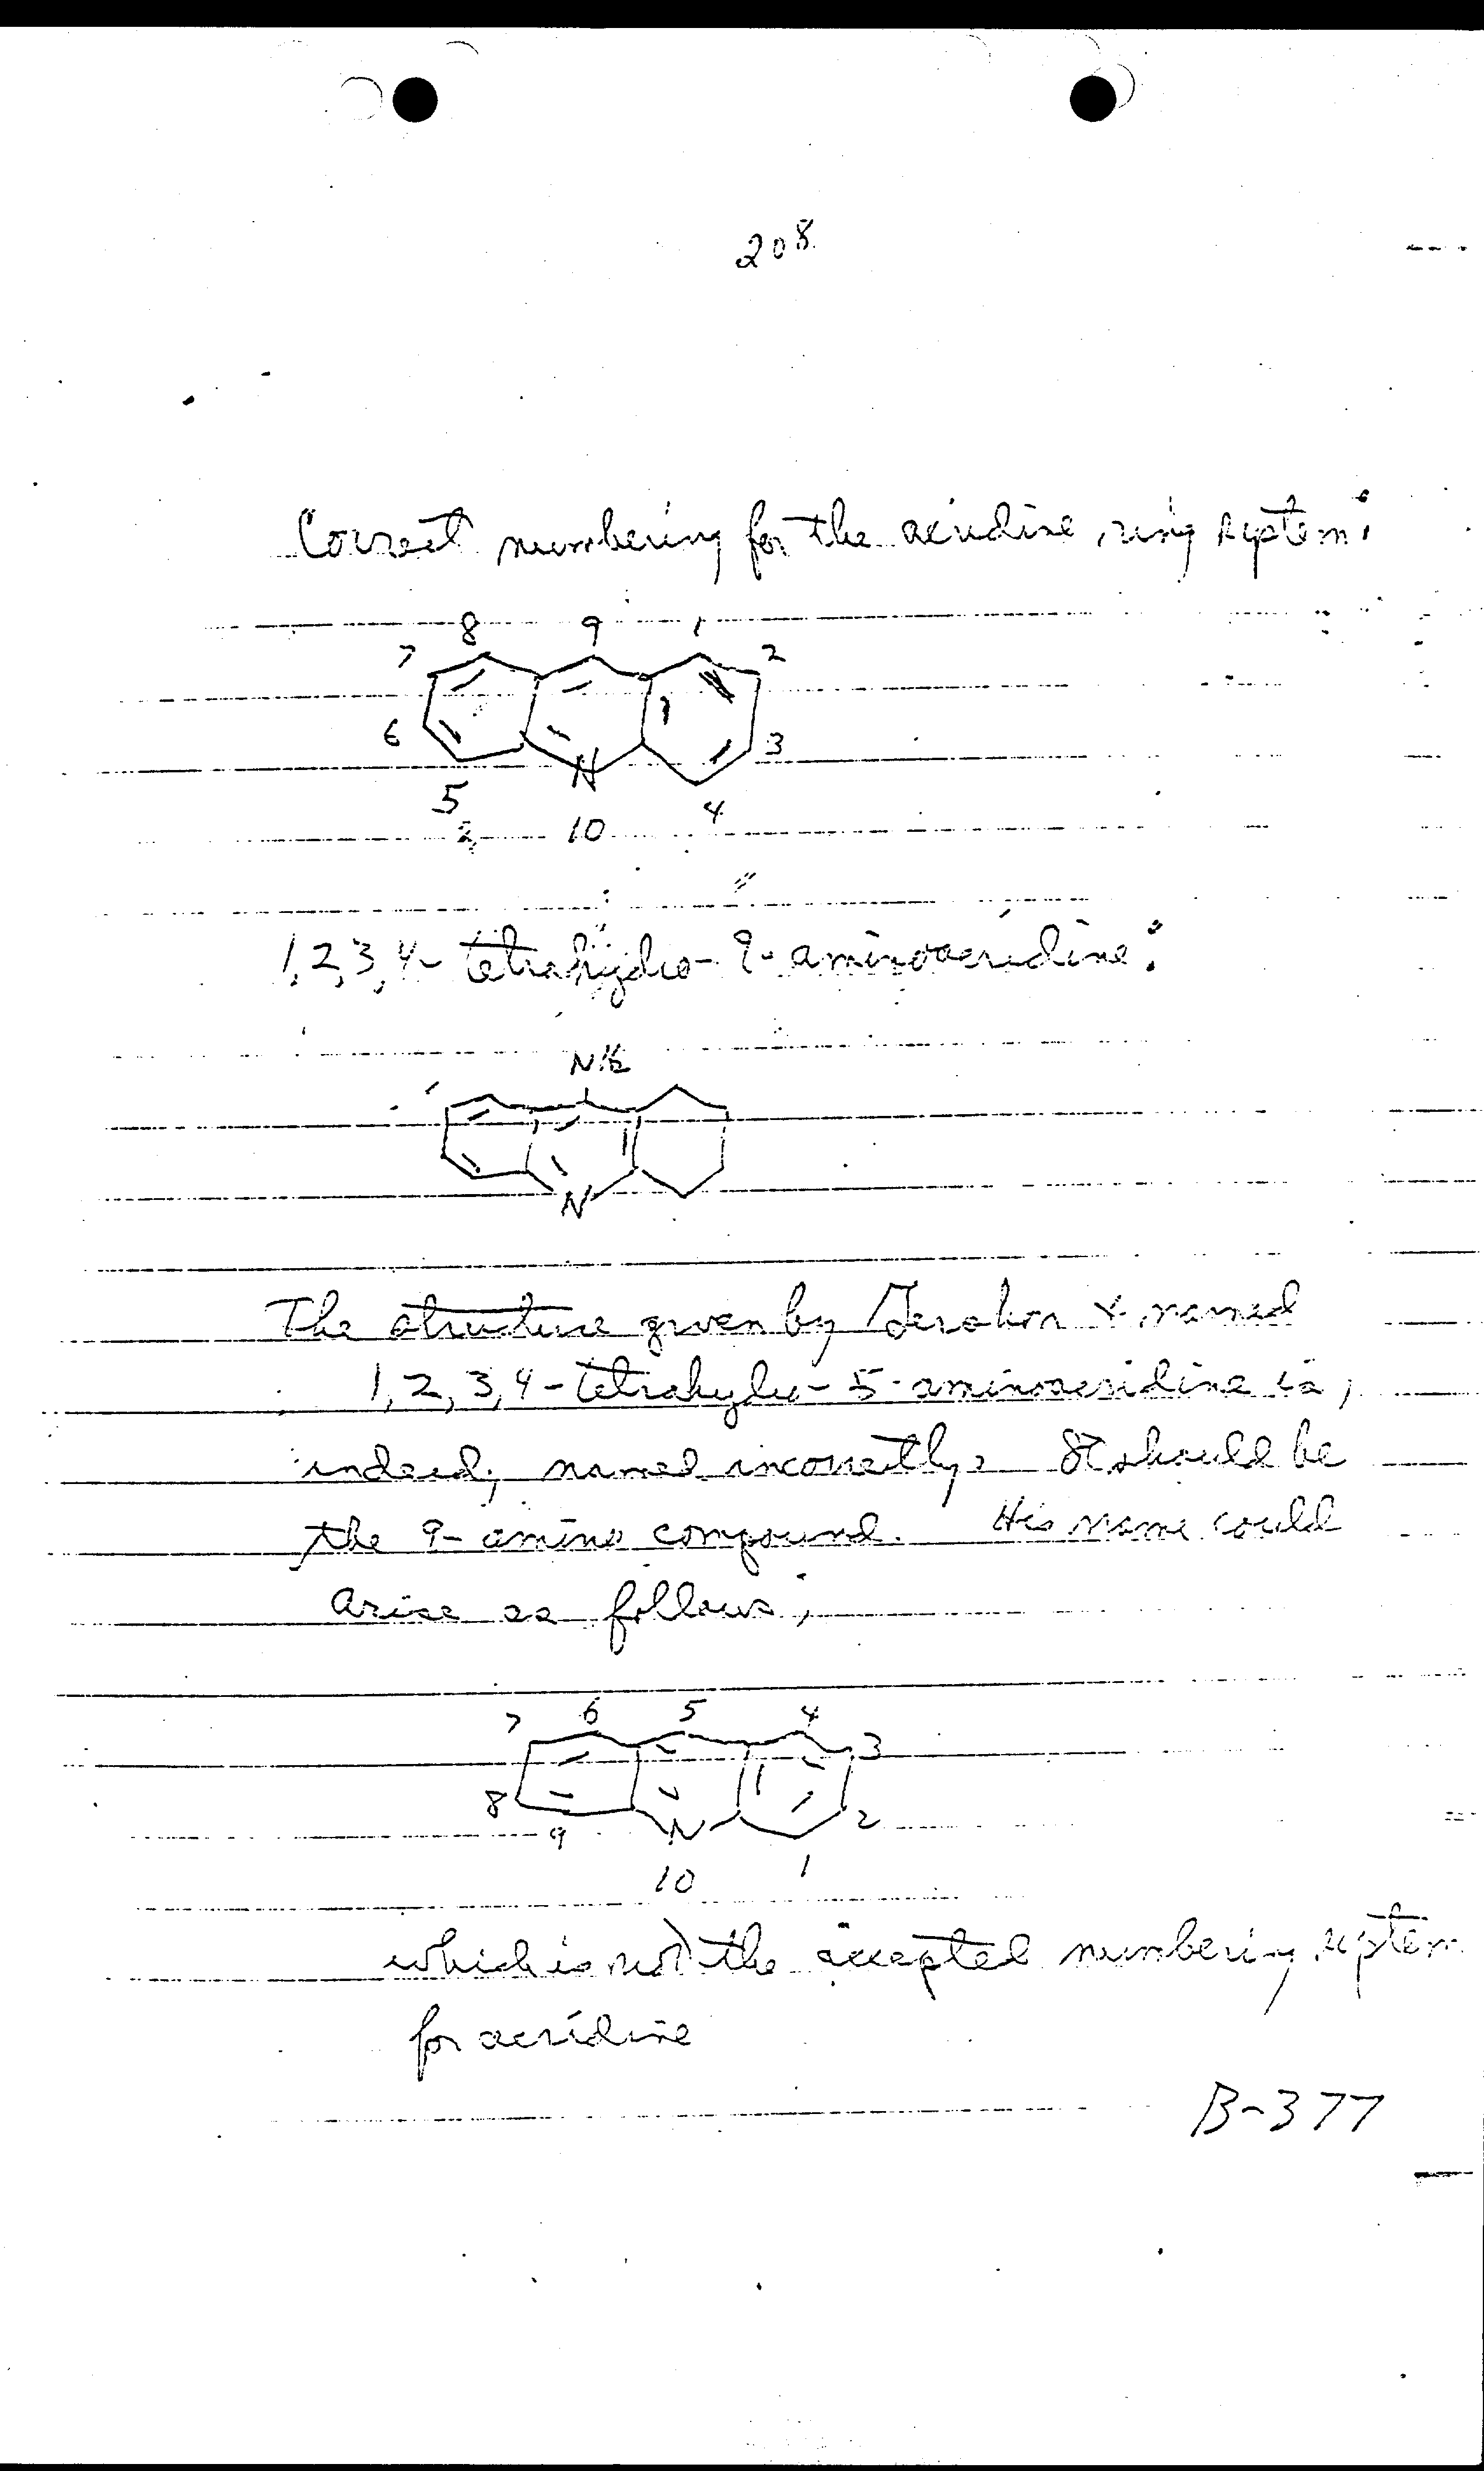 208
Correct numbering for the acridine ring system:
8 9 1
7 2
6 3
N
5 10 4
1,2,3,4-tetrahydro-9-aminoacridine:
NH2
N
The structure given by & named
1,2,3,4-tetrahydro-5-aminoacridine is,
indeed, named incorrectly. It should be
the 9-amino compound. His name could
arise as follows;
7 6 5 4
3
8 2
9 N
10 1
which is not the accepted numbering system
for acridine
B-377